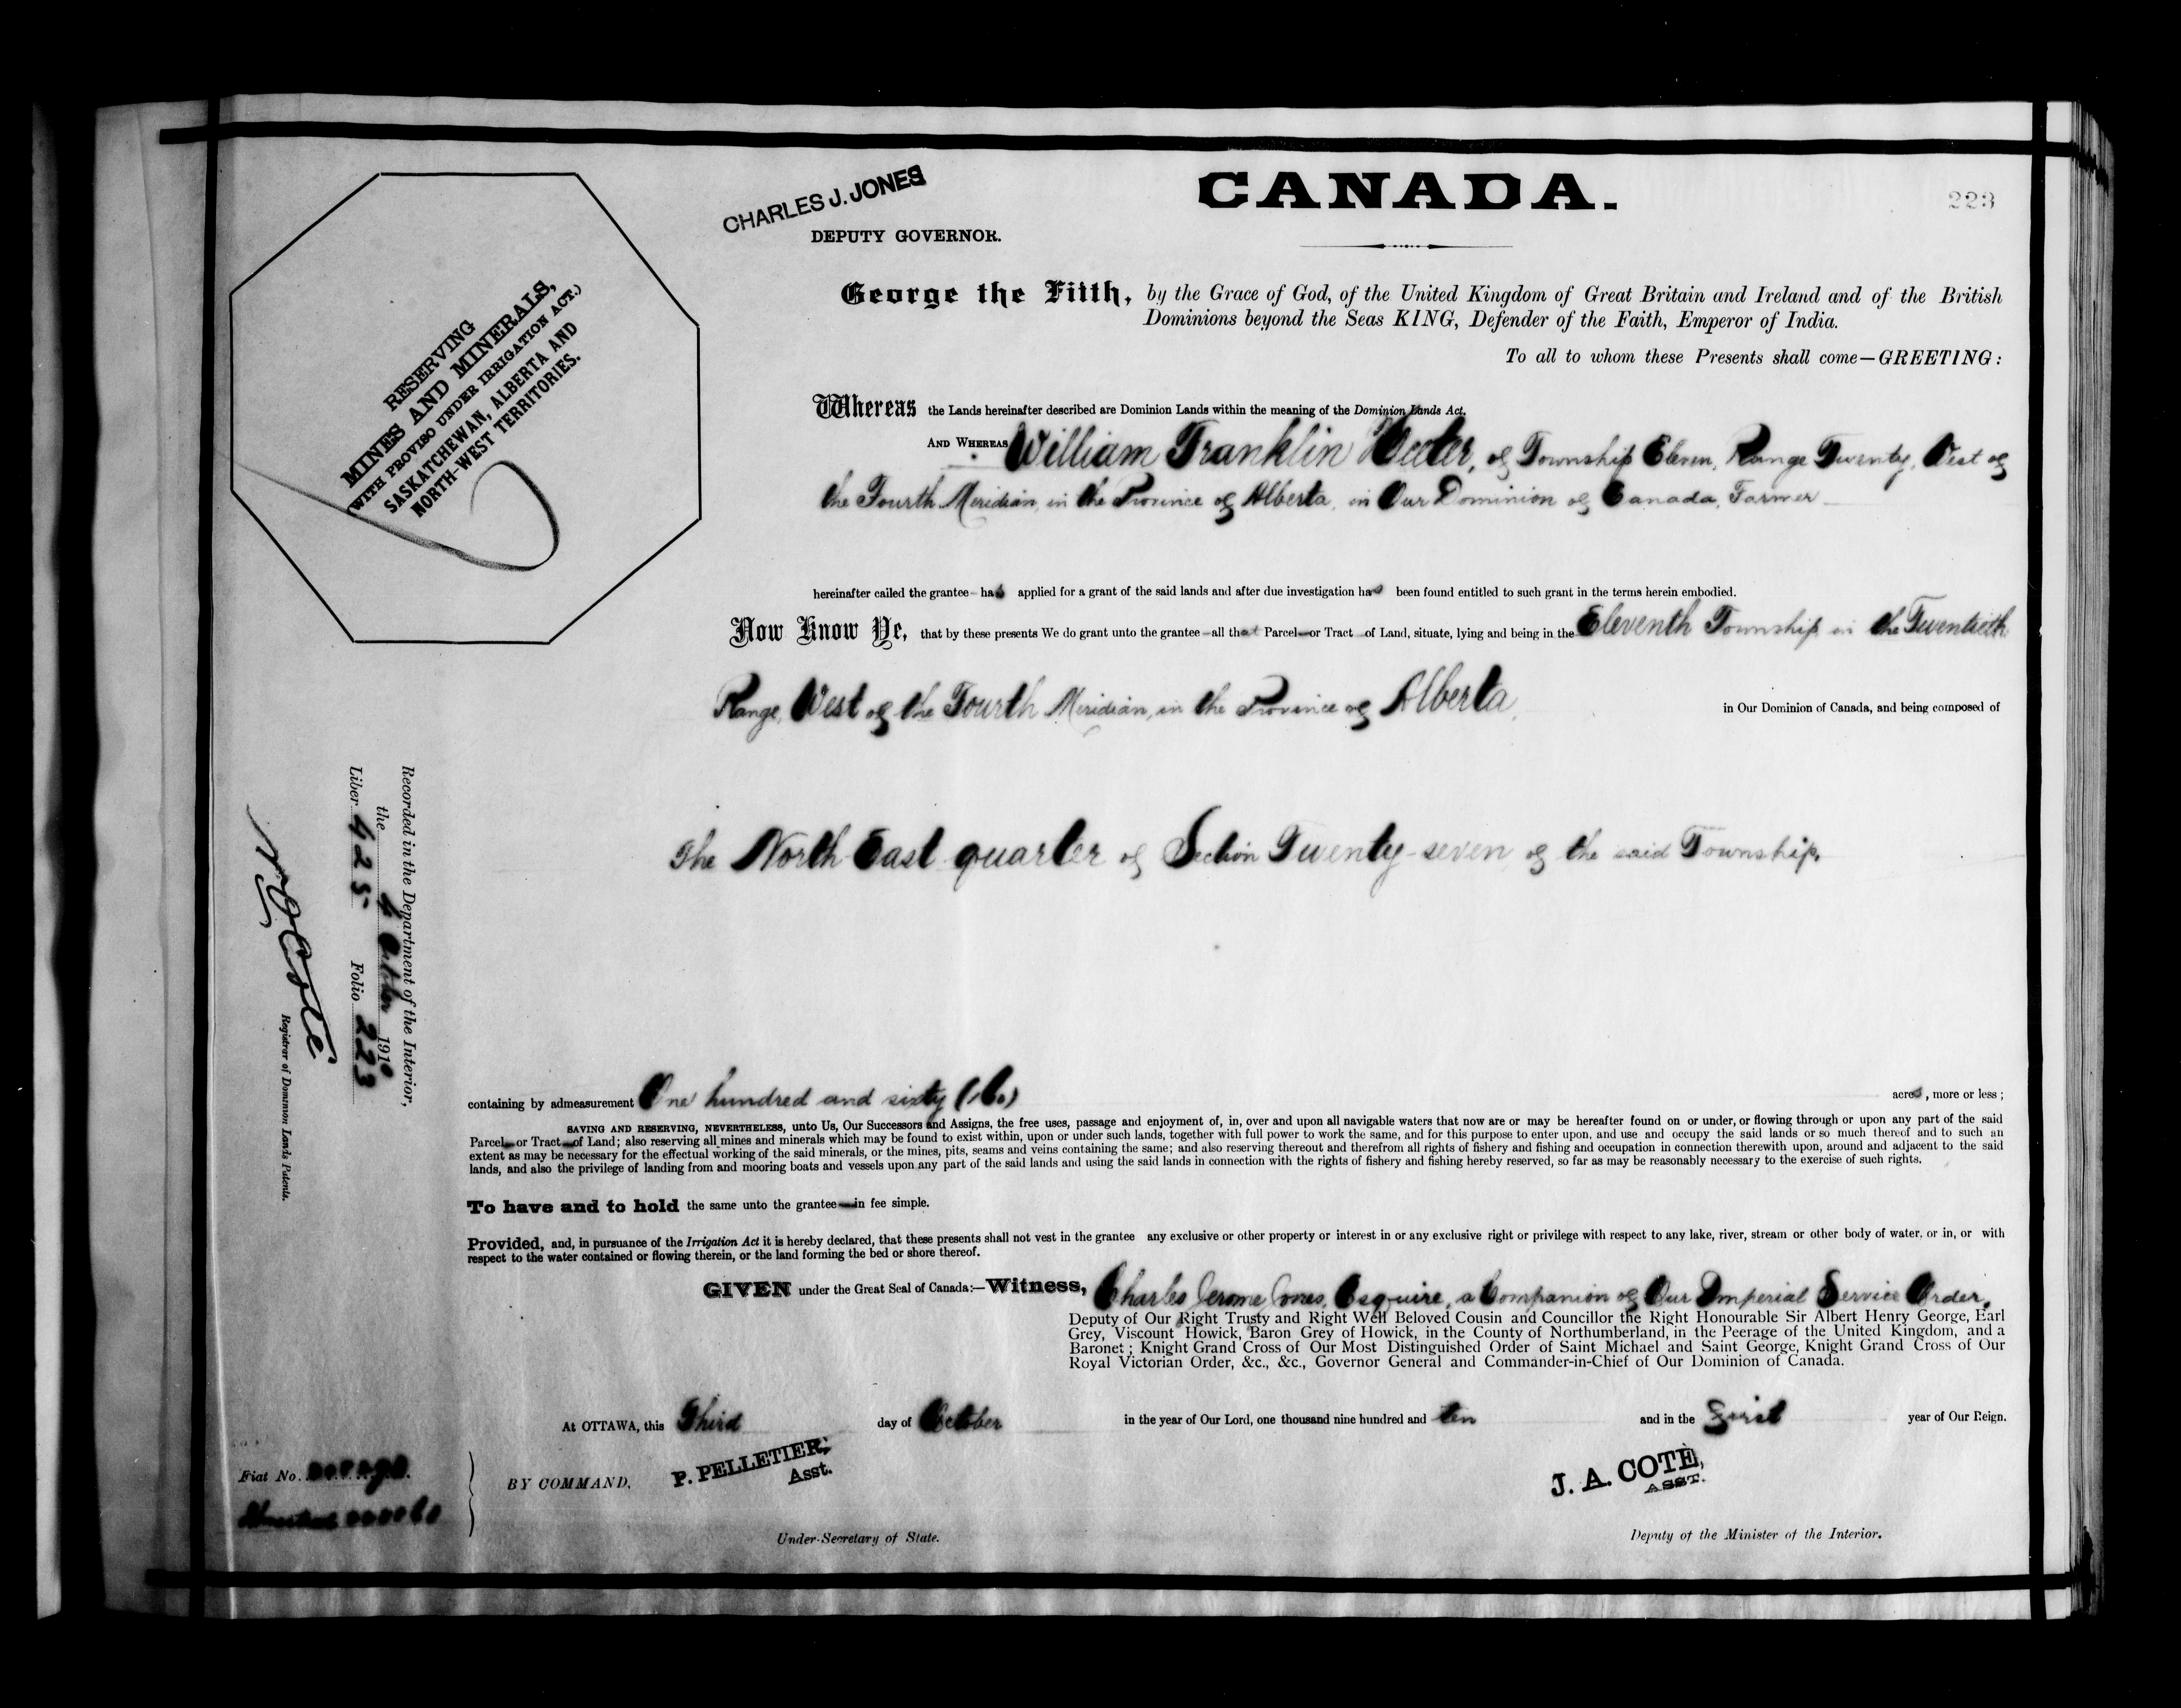 CHARLES J. JONES
DEPUTY GOVERNOR.
CANADA.
223
RESERVING
MINES AND MINERALS,
(WITH PROVISO UNDER IRRIGATION ACT.)
SASKATCHEWAN, ALBERTA AND
NORTH-WEST TERRITORIES.
George the Fifth, by the Grace of God, of the United Kingdom of Great Britain and Ireland and of the British
Dominions beyond the Seas KING, Defender of the Faith, Emperor of India.
To all to whom these Presents shall come—GREETING:
Whereas the Lands hereinafter described are Dominion Lands within the meaning of the Dominion Lands Act.
AND WHEREAS William Franklin of Township Eleven, Range Twenty, West of
the Fourth Meridian, in the Province of Alberta, in Our Dominion of Canada, Farmer
hereinafter called the grantee has applied for a grant of the said lands and after due investigation has been found entitled to such grant in the terms herein embodied.
Now Know Ye, that by these presents We do grant unto the grantee all that Parcel or Tract of Land, situate, lying and being in the Eleventh Township in the Twentieth
Range, West of the Fourth Meridian, in the Province of Alberta, in Our Dominion of Canada, and being composed of
The North East quarter of Section Twenty-seven of the said Township,
Recorded in the Department of the Interior,
the 4 October 1910
Liber 425 Folio 223
Registrar of Dominion Lands Patents.
containing by admeasurement One hundred and sixty (160) acres, more or less;
SAVING AND RESERVING, NEVERTHELESS, unto Us, Our Successors and Assigns, the free uses, passage and enjoyment of, in, over and upon all navigable waters that now are or may be hereafter found on or under, or flowing through or upon any part of the said
Parcel or Tract of Land; also reserving all mines and minerals which may be found to exist within, upon or under such lands, together with full power to work the same, and for this purpose to enter upon, and use and occupy the said lands or so much thereof and to such an
extent as may be necessary for the effectual working of the said minerals, or the mines, pits, seams and veins containing the same; and also reserving thereout and therefrom all rights of fishery and fishing and occupation in connection therewith upon, around and adjacent to the said
lands, and also the privilege of landing from and mooring boats and vessels upon any part of the said lands and using the said lands in connection with the rights of fishery and fishing hereby reserved, so far as may be reasonably necessary to the exercise of such rights.
To have and to hold the same unto the grantee in fee simple.
Provided, and, in pursuance of the Irrigation Act it is hereby declared, that these presents shall not vest in the grantee any exclusive or other property or interest in or any exclusive right or privilege with respect to any lake, river, stream or other body of water, or in, or with
respect to the water contained or flowing therein, or the land forming the bed or shore thereof.
GIVEN under the Great Seal of Canada:—Witness, Charles Jerome Jones, Esquire, a Companion of Our Imperial Service Order,
Deputy of Our Right Trusty and Right Well Beloved Cousin and Councillor the Right Honourable Sir Albert Henry George, Earl
Grey, Viscount Howick, Baron Grey of Howick, in the County of Northumberland, in the Peerage of the United Kingdom, and a
Baronet; Knight Grand Cross of Our Most Distinguished Order of Saint Michael and Saint George, Knight Grand Cross of Our
Royal Victorian Order, &c., &c., Governor General and Commander-in-Chief of Our Dominion of Canada.
At OTTAWA, this Third day of October in the year of Our Lord, one thousand nine hundred and ten and in the First year of Our Reign.
Fiat No.
BY COMMAND,
P. PELLETIER,
Asst.
Under-Secretary of State.
J. A. COTE,
ASST.
Deputy of the Minister of the Interior.